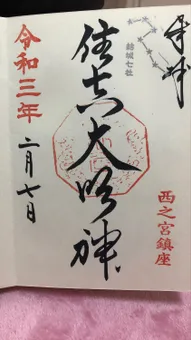 奉拝
結城七社
住吉大明神
西之宮鎮座
令和三年
二月七日